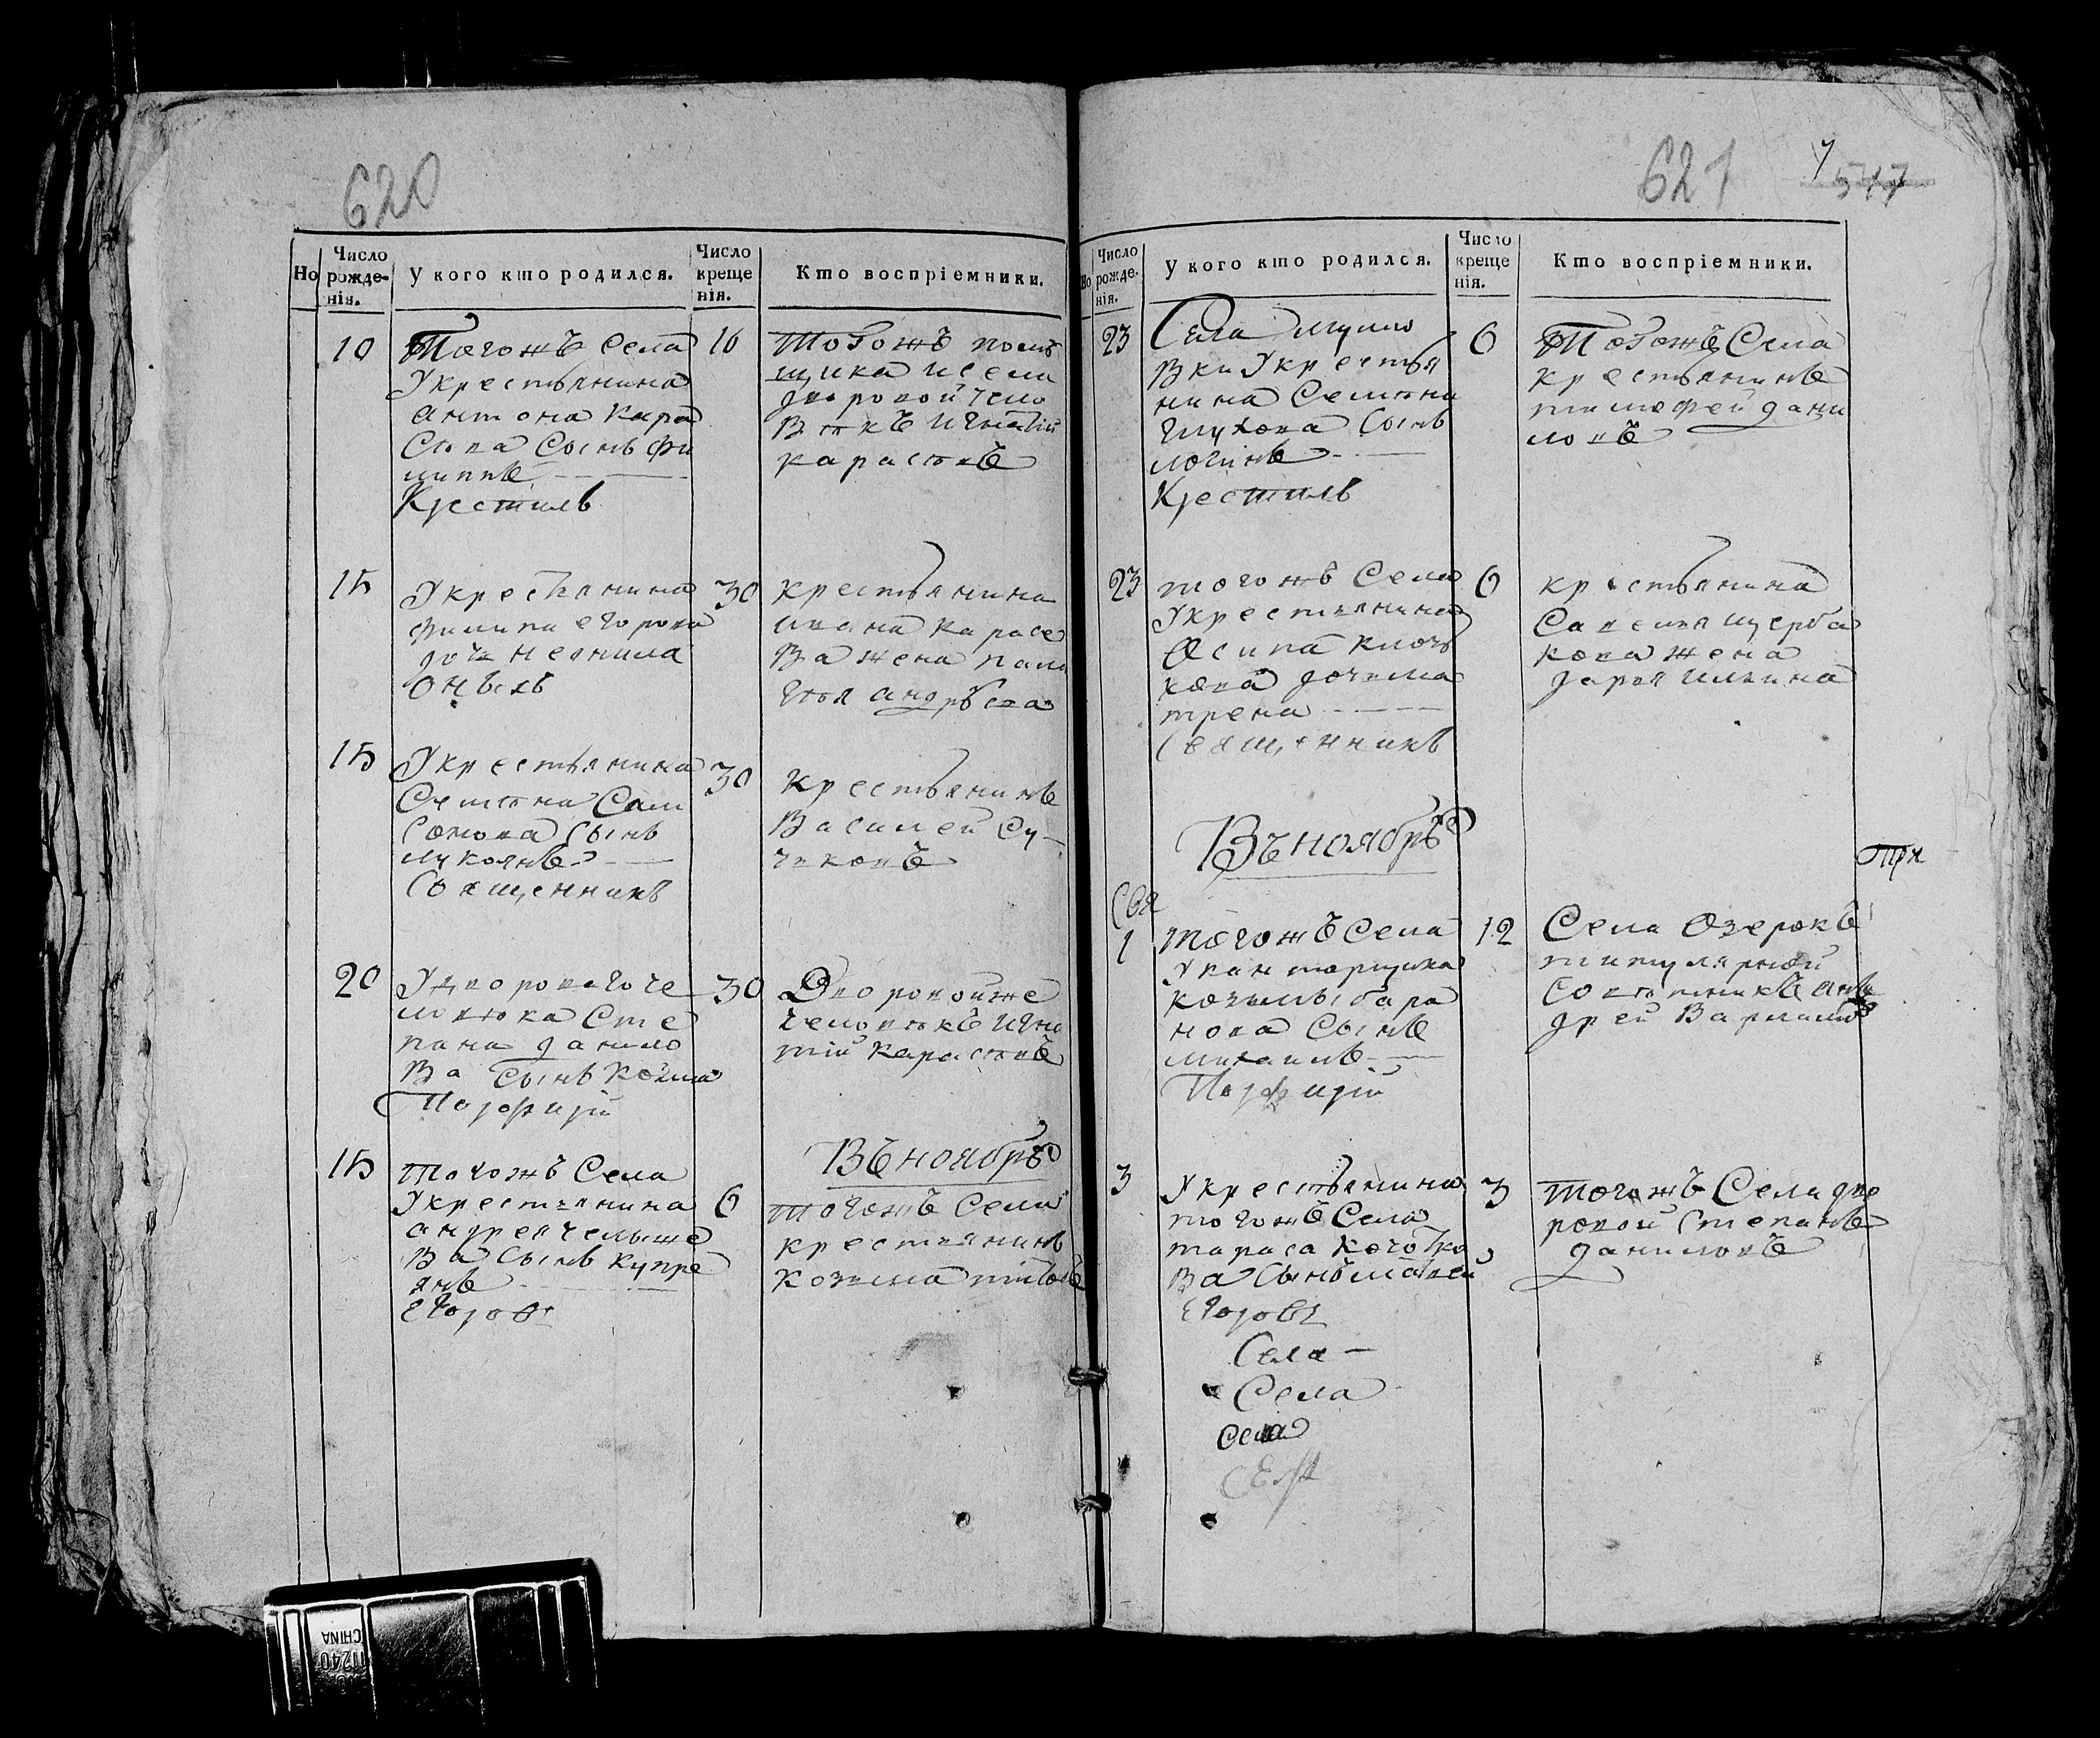 620
Но
Число рожде-нія.
У кого кто родился.
Число креще нія.
Кто воспріемники.
10
Тогожъ Села
Укрестьянина
антона кара
Сѣва Сынъ фи
липпъ
Крестилъ
16
Тогожъ помѣ
щика и села
дворовой чело
Вѣкъ Игнатій
карасѣвъ
15
Укрестьянина
филипа егорова
дочь неонила
Онъ же
30
крестьянина
ивана карасе
Ва жена пала
гѣя андрѣева
15
Укрестьянина
Семѣна Сам
Сонова Сынъ
лукоянъ
Священникъ
30
крестьянинъ
Василей Су-
чковъ
20
Удвороваго че
ловѣка Сте
пана данило
Ва Сынъ козма
Порфирій
30
Двороройже
человѣкъ Игна
тій Карасѣвъ
15
Тогожъ Села
Укрестьянина
андрея челыше
Ва Сынъ купре
янъ
Егоровъ
Въ ноябрѣ
6
Тогожъ Села
крестьянинъ
козма
621
517
Но
Число рожде-нія.
У кого кто родился.
Число креще нія.
Кто воспріемники.
23
Села
Вки Укрестья
нина Семѣна
глухова Сынъ
логинъ
Крестилъ
6
Тогожъ Села
крестьянинъ
тимофей дани
ловъ
23
тогожъ Села
Укрестьянина
Осипа ключь
кова дочьма
трена
Священникъ
6
крестьянина
Савелья щерба
кова жена
дарья ильина
Въ ноябрѣ
Свя
1
тогожъ Села
Уканторщика
козьмы бара
нова Сынъ
михаилъ
Порфирій
12
Села Озерокъ
титулярной
Совѣтникъ ан
дрей
3
Укрестьянина
тогожъ Села
тараса кочетко
Ва Сынъ матвей
Егоровъ
3
тогожъ Села дво
ровой Степанъ
даниловъ
Села
Села
Села
Села
11240
CHINA